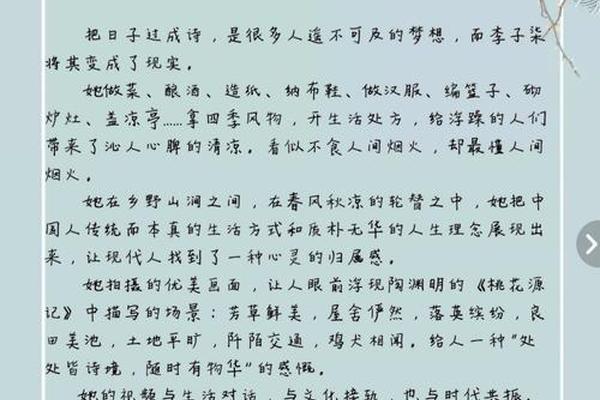 把日子过成诗，是很多人遥不可及的梦想，而李子柒
将其变成了现实。
她做菜、酿酒、造纸、纳布鞋、做汉服、编篮子、砌
炉灶、盖凉亭……拿四季风物，开生活处方，给浮躁的人们
带来了沁人心脾的清凉。看似不食人间烟火，却最懂人间
烟火。
她在乡野山涧之间，在春风秋凉的轮替之中，她把中
国人传统而本真的生活方式和质朴无华的人生理念展现出
来，让现代人找到了一种心灵的归属感。
她拍摄的优美画面，让人眼前浮现陶渊明的《桃花源
记》中描写的场景：芳草鲜美，屋舍俨然，落英缤纷，良
田美池，土地平旷，阡陌交通，鸡犬相闻。给人一种“处
处皆诗境，随时有物华”的感慨。
她的视频与生活对话，与文化接轨，也与时代共振。